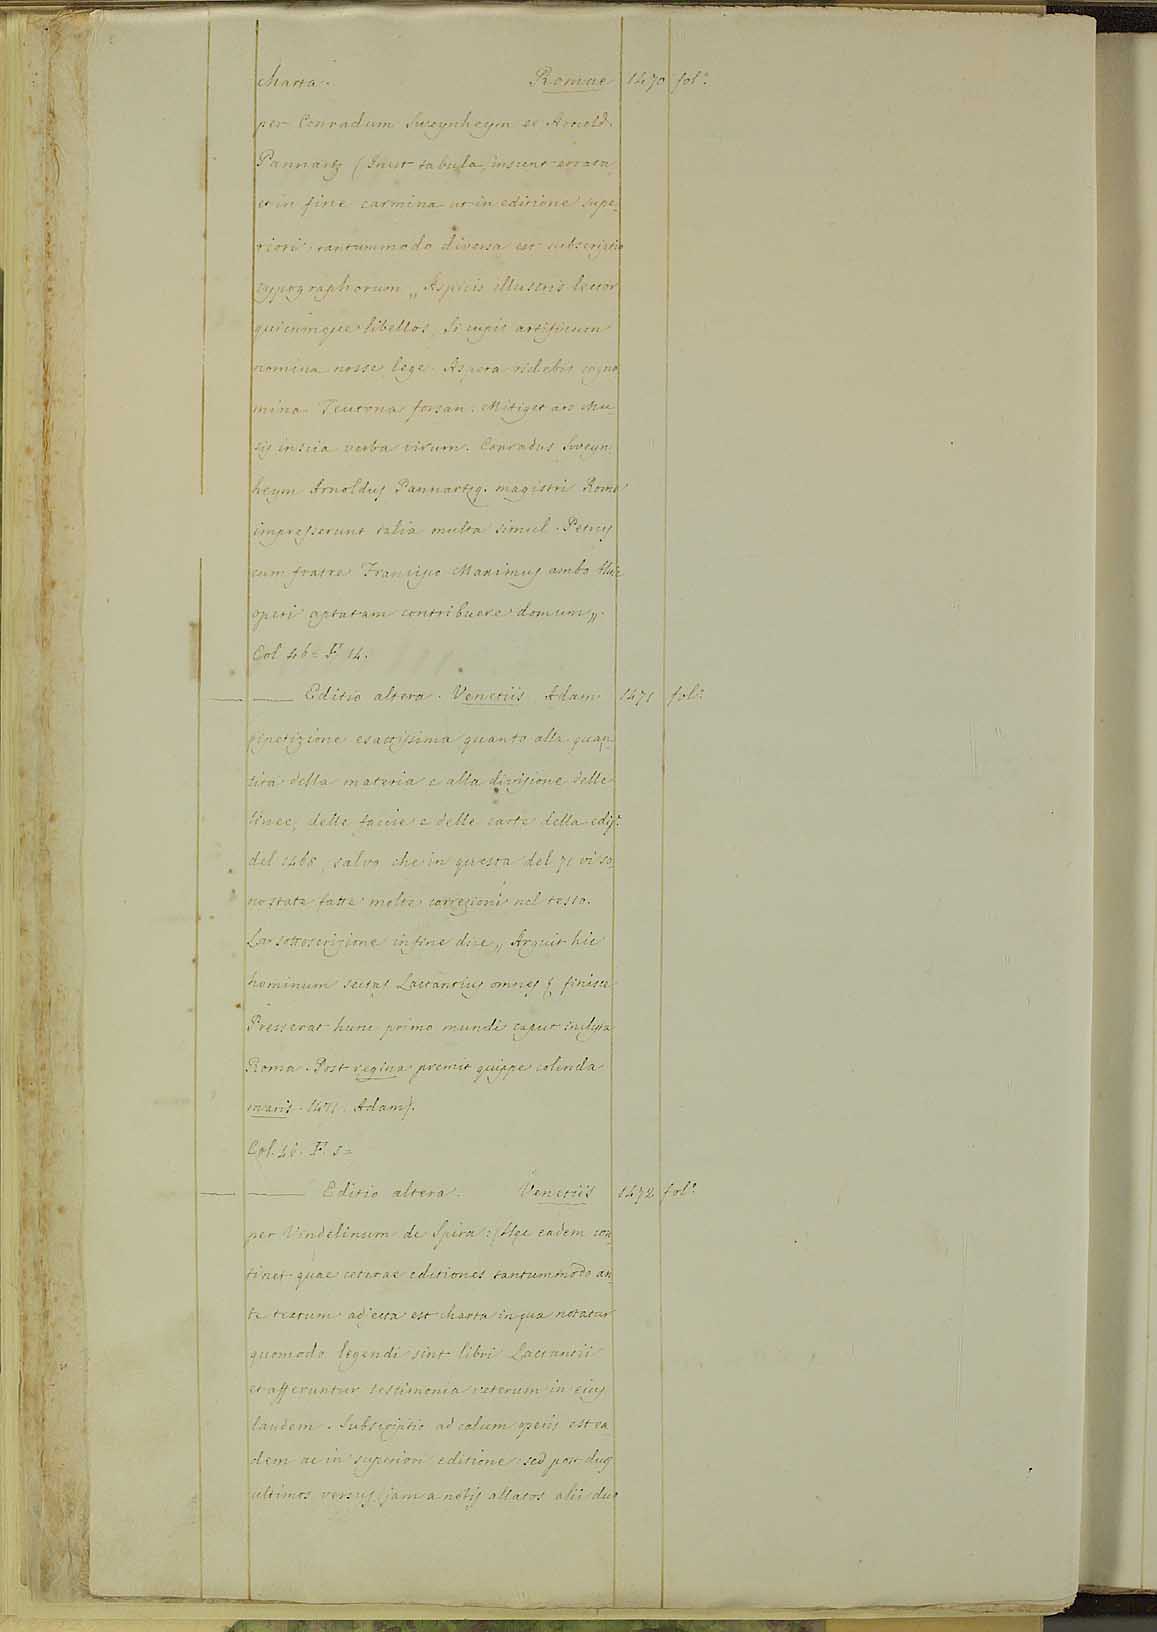 charta. Romae 1470 fol.º
per Conradum Sweynheym et Arnold.
Pannartz (Inest tabula, insunt errata,
et in fine carmina ut in editione supe-
riori: tantummodo diversa est subscriptio
typographorum „ Aspicis illustris lector
quicumque libellos, Si cupis artificum
nomina nosse lege. Aspera ridebis cogno
mina Teutona forsan: Mitiget ars Mu-
sis inscia verba virum. Conradus Sweyn-
heym Arnoldus Pannartzq. magistri Rome
impresserunt talia multa simul. Petrus
cum fratre Francisco Maximus ambo Huic
operi aptatam contribuere domum„.
Col 46= F. 14.
— — Editio altera. Venetiis Adam 1471 fol.º
ripetizione esattissima quanto alla quan
tità della materia e alla divisione delle
linee, delle faccie e delle carte della ediz.
del 1468, salvo che in questa del 71 vi so
no state fatte molte correzioni nel testo.
La sottoscrizione in fine dice„ Arguit hic
hominum sectas Lactantius omnes & finisce
Presserat hunc primo mundi caput inclyta
Roma. Post regina premit quippe colenda
maris. 1471. Adam).
Col. 46. F. 5=
— — Editio altera. Venetiis 1472 fol.º
per Vindelinum de Spira: (Hęc eadem con-
tinet quae ceterae editiones tantummodo an-
te textum adjecta est charta in qua notatur
quomodo legendi sint libri Lactantii
et afferuntur testimonia veterum in ejus
laudem. Subscriptio ad calcem operis est ea
dem ac in superiori editione: sed post duos
ultimos versus jam a nobis allatos alii duo